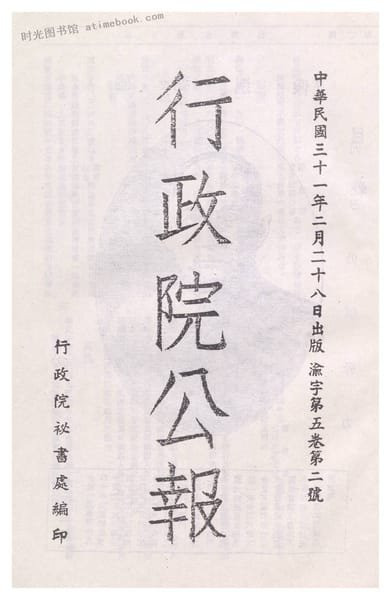 时光图书馆 atimebook.com
中華民國三十一年二月二十八日出版 渝字第五卷第二號
行政院公報
行政院祕書處編印